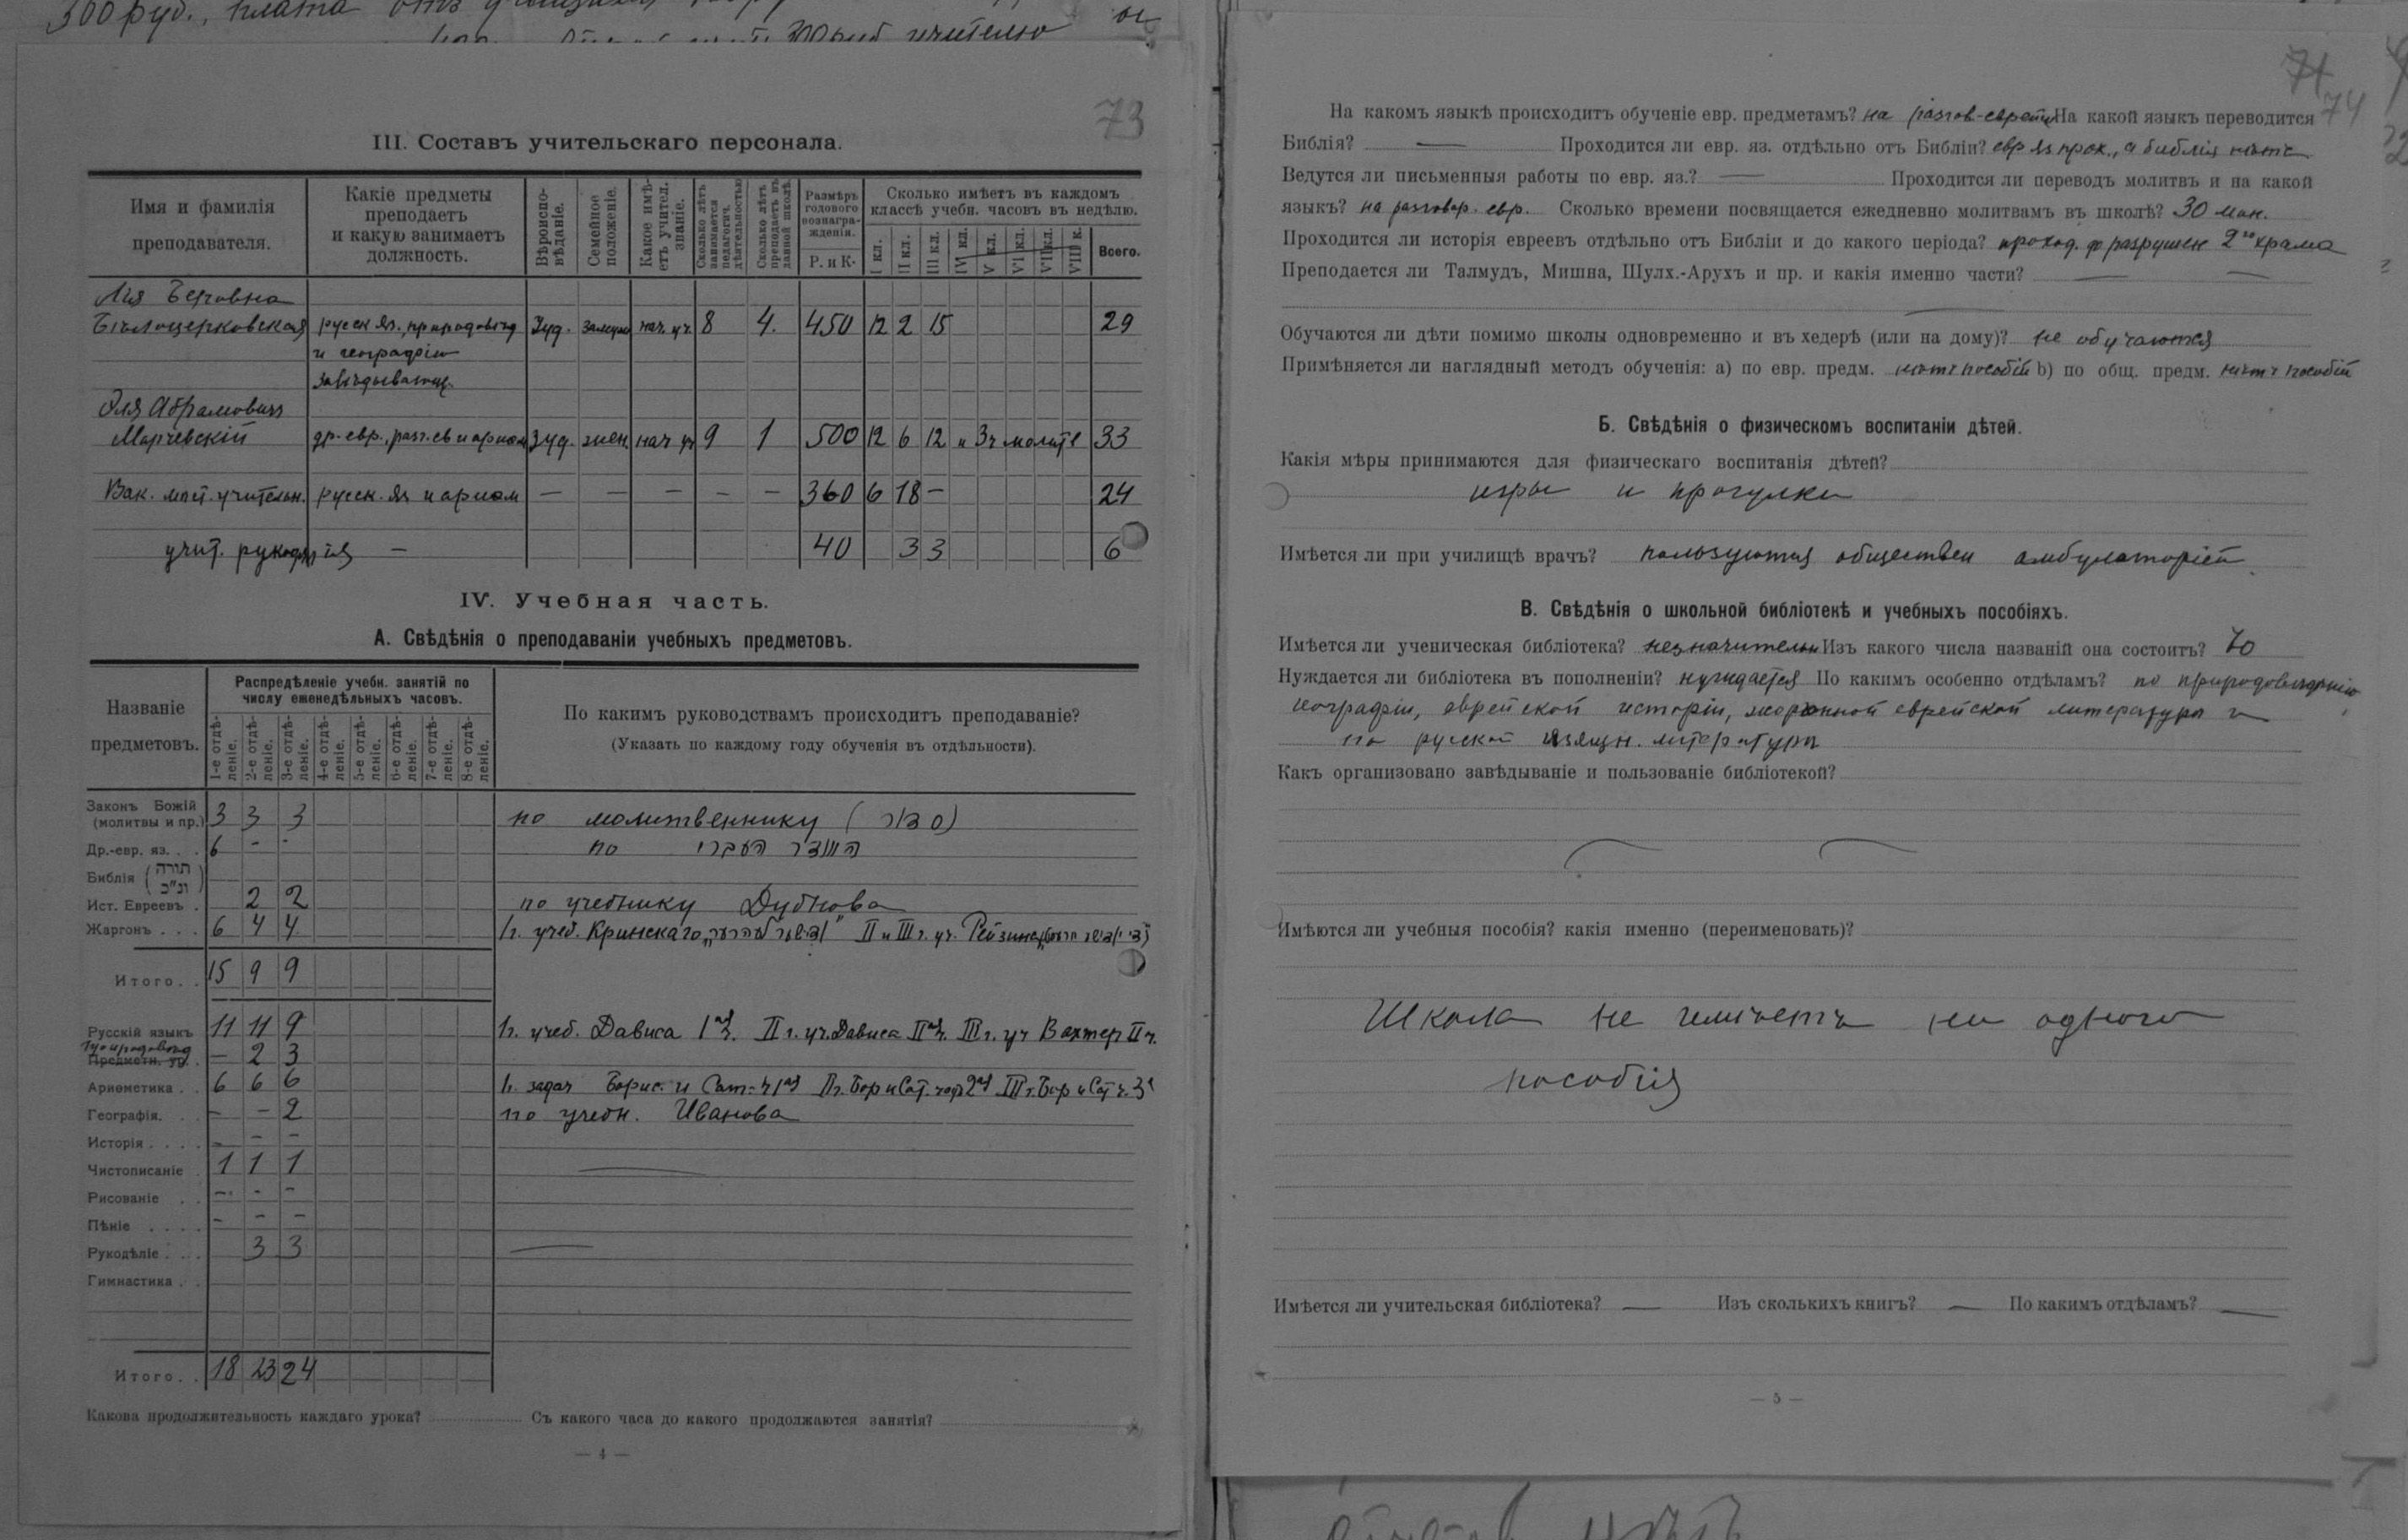 300 руб., плата отъ
300 руб учителю
73
III. Составъ учительскаго персонала.
Имя и фамилія преподавателя.
Какіе предметы преподаетъ и какую занимаетъ должность.
Вѣроиспо-вѣданіе.
Семейное положеніе.
Какое имѣ-етъ учител. званіе.
Сколько лѣтъ занимается педагогич. дѣятельностью
Сколько лѣтъ преподаетъ въ данной школѣ.
Размѣръ годового вознагра-жденія.
Р. и К.
Сколько имѣетъ въ каждомъ классѣ учебн. часовъ въ недѣлю.
I кл. II кл. III кл. IV кл. V кл. VI кл. VII кл. VIII к. Всего.
Лія Беровна
Бѣлоцерковская русск яз., природовѣд Іуд. замуж нач. уч. 8 4. 450 12 2 15 29
и географіи
завѣдывающ.
Эля Абрамовичъ
Марчевскій др.-евр., разг. ев и ариѳм Іуд. жен. нач уч 9 1 500 12 6 12 и 3ч молитв 33
Вак. мѣст. учительн. русск. яз и ариѳм — — — — — 360 6 18 — 24
учит. рукодѣлія — 40 3 3 6
IV. Учебная часть.
А. Свѣдѣнія о преподаваніи учебныхъ предметовъ.
Названіе предметовъ.
Распредѣленіе учебн. занятій по числу еженедѣльныхъ часовъ.
1-е отдѣ-леніе. 2-е отдѣ-леніе. 3-е отдѣ-леніе. 4-е отдѣ-леніе. 5-е отдѣ-леніе. 6-е отдѣ-леніе. 7-е отдѣ-леніе. 8-е отдѣ-леніе.
По какимъ руководствамъ происходитъ преподаваніе?
(Указать по каждому году обученія въ отдѣльности).
Законъ Божій
(молитвы и пр.) 3 3 3 по молитвеннику (סדור)
Др.-евр. яз. . . 6 - - по הדבור העברי
Библія (תורה ונ"כ)
Ист. Евреевъ . 2 2 по учебнику Дубнова
Жаргонъ . . . 6 4 4 Iг. учеб. Кринскаго II и III г. уч. Рейзина
Итого. . 15 9 9
Русскій языкъ 11 11 9 Iг. учеб. Дависа 1ч. II г. уч. Дависа IIч. III г. уч Вахтер II ч.
Природовѣд
Предметн. ур. . — 2 3
Ариѳметика . . 6 6 6 Iг. задач Борис. и Сат. ч 1ая IIг. Бор и Сат. час 2ая III г. Бор и Сат ч. 3я
Географія. . . - - 2 по учебн. Иванова
Исторія . . . . - - -
Чистописаніе . 1 1 1
Рисованіе . . - - -
Пѣніе . . . . - - -
Рукодѣліе . . . 3 3
Гимнастика . .
Итого. . 18 23 24
Какова продолжительность каждаго урока? Съ какого часа до какого продолжаются занятія?
— 4 —
71
74
На какомъ языкѣ происходитъ обученіе евр. предметамъ? на разгов.-еврейск На какой языкъ переводится
Библія? — Проходится ли евр. яз. отдѣльно отъ Библіи? евр яз прох., а библія нѣтъ
Ведутся ли письменныя работы по евр. яз.? — Проходится ли переводъ молитвъ и на какой
языкъ? на разговор. евр. Сколько времени посвящается ежедневно молитвамъ въ школѣ? 30 мин.
Проходится ли исторія евреевъ отдѣльно отъ Библіи и до какого періода? проход. до разрушен 2го храма
Преподается ли Талмудъ, Мишна, Шулх.-Арухъ и пр. и какія именно части? —
Обучаются ли дѣти помимо школы одновременно и въ хедерѣ (или на дому)? не обучаются
Примѣняется ли наглядный методъ обученія: а) по евр. предм. нѣтъ пособій b) по общ. предм. нѣтъ пособій
Б. Свѣдѣнія о физическомъ воспитаніи дѣтей.
Какія мѣры принимаются для физическаго воспитанія дѣтей?
игры и прогулки
Имѣется ли при училищѣ врачъ? пользуются обществен амбулаторіей
В. Свѣдѣнія о школьной библіотекѣ и учебныхъ пособіяхъ.
Имѣется ли ученическая библіотека? незначительн Изъ какого числа названій она состоитъ? 70
Нуждается ли библіотека въ пополненіи? нуждается По какимъ особенно отдѣламъ? по природовѣдѣнію
географіи, еврейской исторіи, жаргонной еврейской литературѣ и
по русской изящн. литературѣ
Какъ организовано завѣдываніе и пользованіе библіотекой?
Имѣются ли учебныя пособія? какія именно (переименовать)?
Школа не имѣетъ ни одного
пособія
Имѣется ли учительская библіотека? — Изъ сколькихъ книгъ? — По какимъ отдѣламъ? —
— 5 —